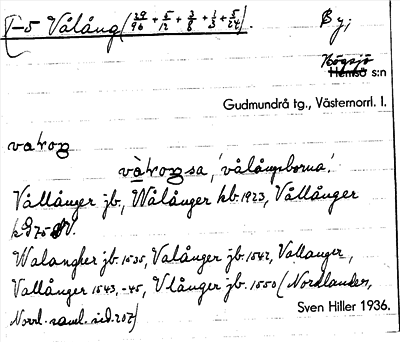 1-5 Vålång (29/96 + 5/12 + 3/8 + 1/3 + 5/24). By;
Högsjö
Hemsö s:n
Gudmundrå tg., Västernorrl. l.
'vålångborna'.
Vållånger jb., Wålånger kb. 1923, Vållånger
Walangher jb. 1535, Valånger jb. 1542, Vallanger,
Vallånger 1543, -45, Vlånger jb. 1550 (Nordlander,
Norrl. saml. sid. 207)
Sven Hiller 1936.